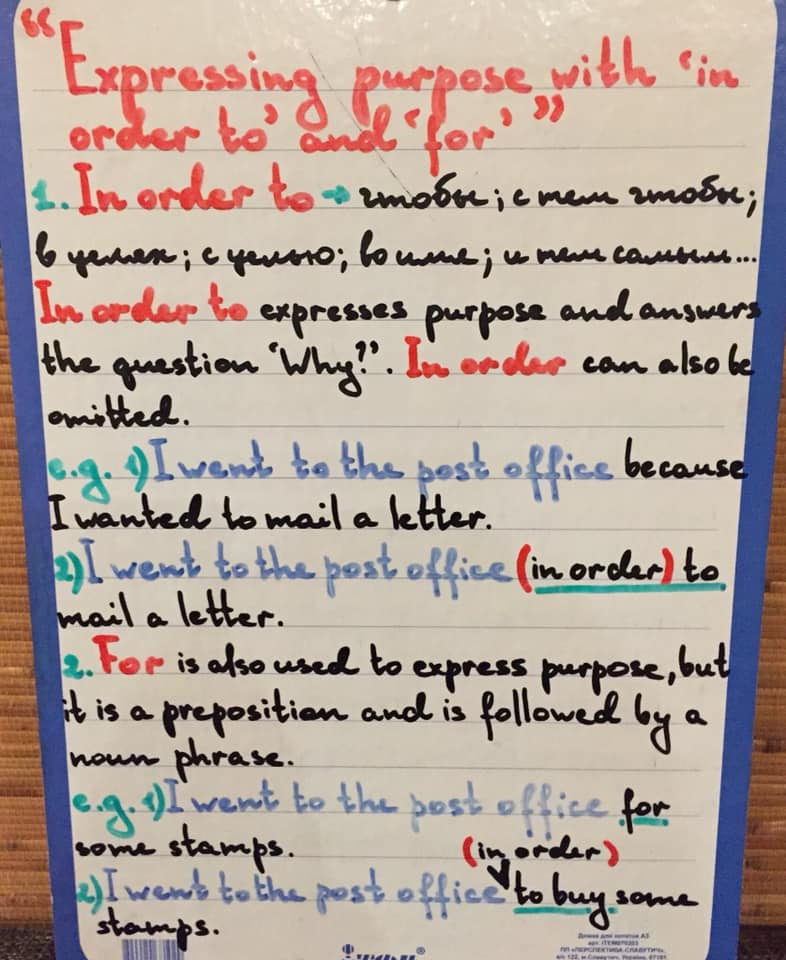 “Expressing purpose with ‘in
order to’ and ‘for’”
1. In order to → чтобы; с тем чтобы;
в целях; с целью; во имя; и тем самым...
In order to expresses purpose and answers
the question ‘Why?’. In order can also be
omitted.
e.g. 1) I went to the post office because
I wanted to mail a letter.
2) I went to the post office (in order) to
mail a letter.
2. For is also used to express purpose, but
it is a preposition and is followed by a
noun phrase.
e.g. 1) I went to the post office for
some stamps.
(in order)
2) I went to the post office to buy some
stamps.
Дошка для нотаток А3
арт. ITEM070203
ПП «ПЕРСПЕКТИВА-СЛАВУТИЧ»,
а/с 122, м.Славутич, Україна, 07101